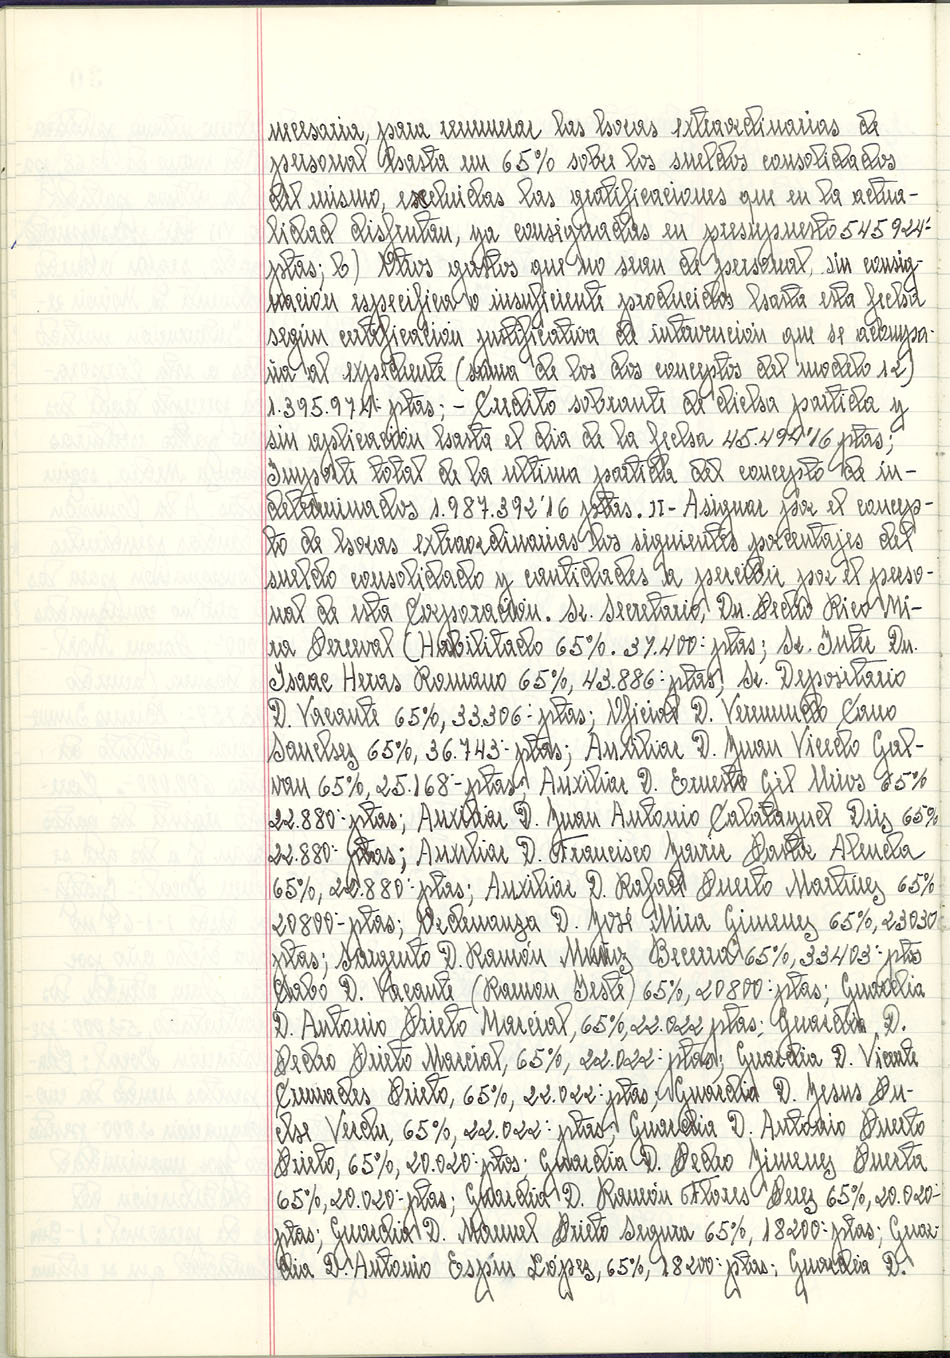 necesaria, para remunerar las horas extraordinarias de
personal hasta un 65% sobre los sueldos consolidados
del mismo, excluidas las gratificaciones que en la actua-
lidad disfrutan, ya consignadas en presupuesto 545924'-
ptas; b) Otros gastos que no sean de personal, sin consig-
nación especifica o insuficiente producidos hasta esta fecha
según certificación justificativa de intervencion que se acompa-
ña al expediente (suma de los dos conceptos del modelo 12)
1.395.974'- ptas; - Credito sobrante de dicha partida y
sin aplicación hasta el dia de la fecha 45.494'16 ptas;
Importe total de la ultima partida del concepto de in-
determinados 1.987.392'16 ptas. II- Asignar por el concep-
to de horas extraordinarias los siguientes porcentajes del
sueldo consolidado y cantidades a percibir por el perso-
nal de esta Corporación. Sr. Secretario, Dn. Pedro Rico Mi-
ra Perceval (Habilitado 65%. 37.400'- ptas; Sr. Intr Dn.
Isaac Heras Romano 65%, 43.886'- ptas; Sr. Depositario
D. Vacante 65%, 33306'- ptas; Oficial D. Veremundo Cano
Sanchez 65%, 36.743'- ptas; Auxiliar D. Juan Vicedo Gal-
van 65%, 25.168'- ptas; Auxiliar D. Ernesto Gil Mios 65%
22.880'- ptas; Auxiliar D. Juan Antonio Calatayud Diez 65%
22.880'- ptas; Auxiliar D. Francisco Javier Alenda
65%, 22.880'- ptas; Auxiliar D. Rafael Puerto Martinez 65%
20800'- ptas; Ordenanza D. José Mira Gimenez 65%, 23030'-
ptas; Sargento D. Ramón Muñoz Becerra 65%, 33403'- ptas
Cabo D. Vacante (Ramon Yeste) 65%, 20800'- ptas; Guardia
D. Antonio Prieto Marcial, 65%, 22.022 ptas; Guardia D.
Pedro Prieto Marcial, 65%, 22.022'- ptas; Guardia D. Vicente
Prieto, 65%, 22.022'- ptas; Guardia D. Jesus Pu-
che Verdu, 65%, 22.022'- ptas; Guardia D. Antonio Puerto
Prieto, 65%, 20.020'- ptas; Guardia D. Pedro Jimenez Puerta
65%, 20.020'- ptas; Guardia D. Ramón Flores Perez 65%, 20.020'-
ptas; Guardia D. Manuel Prieto Segura 65%, 18200'- ptas; Guar-
dia D. Antonio Espin López, 65%, 18200'- ptas; Guardia D.